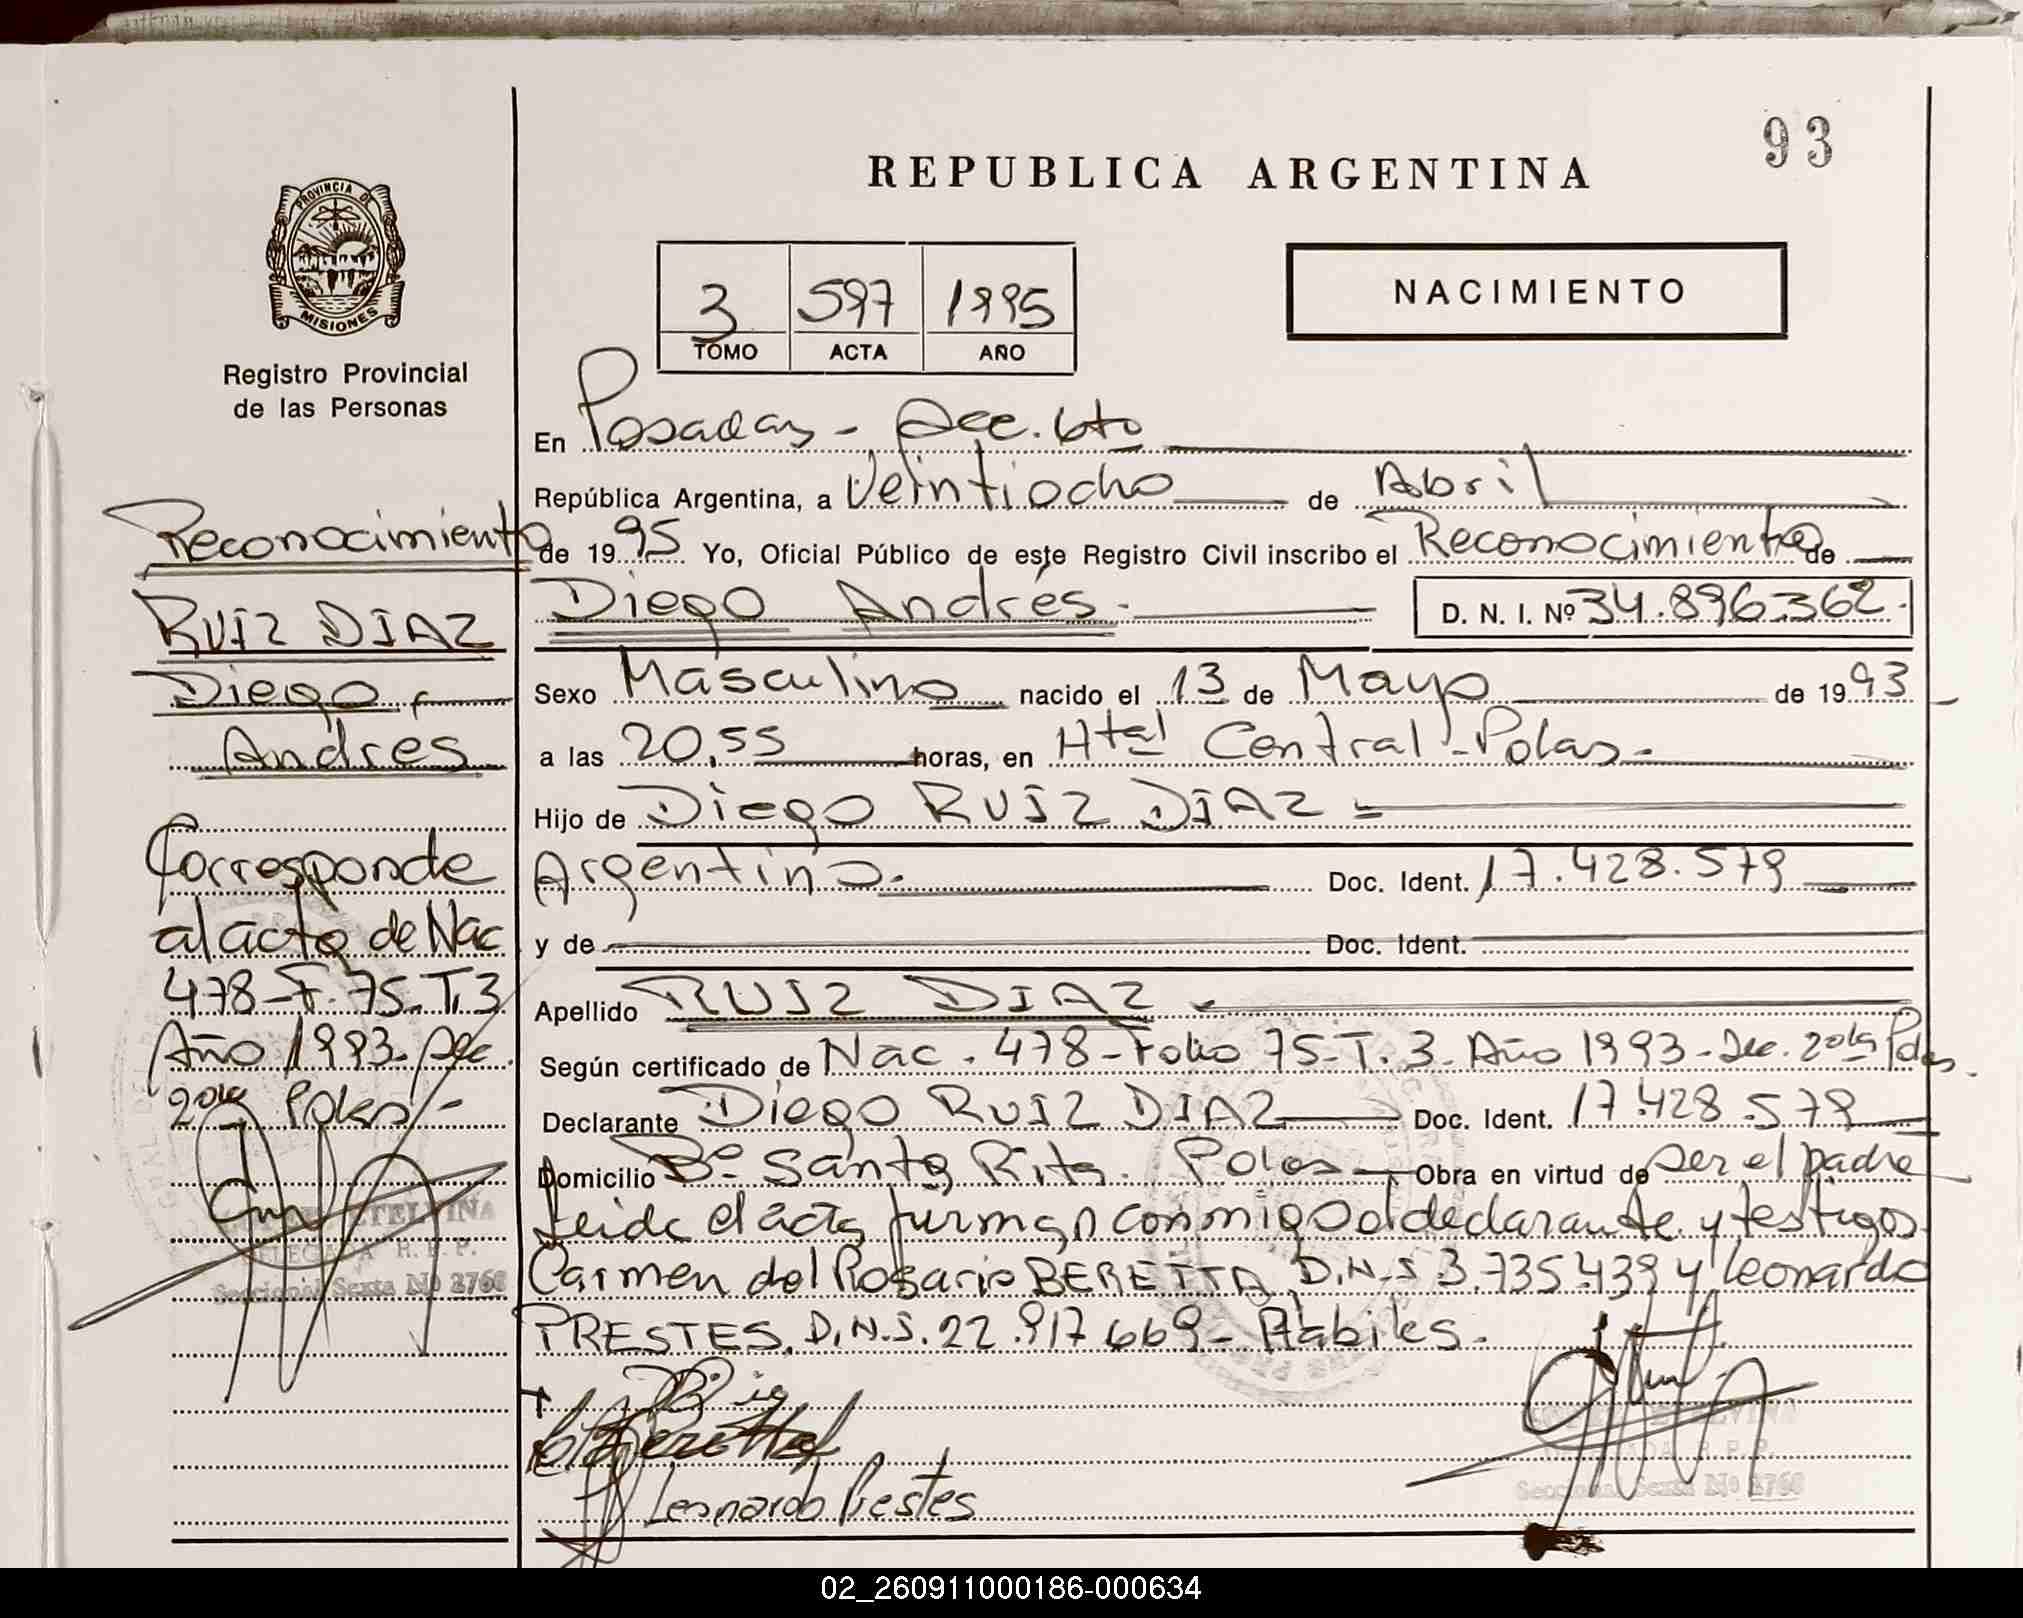 93
REPUBLICA ARGENTINA
PROVINCIA DE
MISIONES
Registro Provincial
de las Personas
3 597 1995
TOMO ACTA AÑO
NACIMIENTO
Reconocimiento
RUIZ DIAZ
Diego
Andres
Corresponde
al acta de Nac
478-F.75-T.3
Año 1993. Sec.
2da Pdas.-
ETELVINA
DELEGADA R.P.P.
Seccional Sexta Nº 2760
En Posadas - Sec. 6to
República Argentina, a Veintiocho de Abril
de 1995 Yo, Oficial Público de este Registro Civil inscribo el Reconocimiento de
Diego Andrés. D. N. I. Nº 34.896.362.
Sexo Masculino nacido el 13 de Mayo de 1993
a las 20,55 horas, en Htal Central - Pdas.
Hijo de Diego RUIZ DIAZ
Argentino. Doc. Ident. 17.428.579
y de Doc. Ident.
Apellido RUIZ DIAZ
Según certificado de Nac. 478-Folio 75-T.3. Año 1993-Sec. 2da Pdas.
Declarante Diego RUIZ DIAZ Doc. Ident. 17.428.579
Domicilio Bº Santa Rita. Pdas Obra en virtud de ser el padre
Leida el acta firman conmigo el declarante y testigos
Carmen del Rosario BERETTA, D.N.I 3.735.439 y Leonardo
PRESTES, D.N.I. 22.917.669 - Hábiles.
Beretta
Leonardo Prestes
Seccional Sexta Nº 2760
02_260911000186-000634